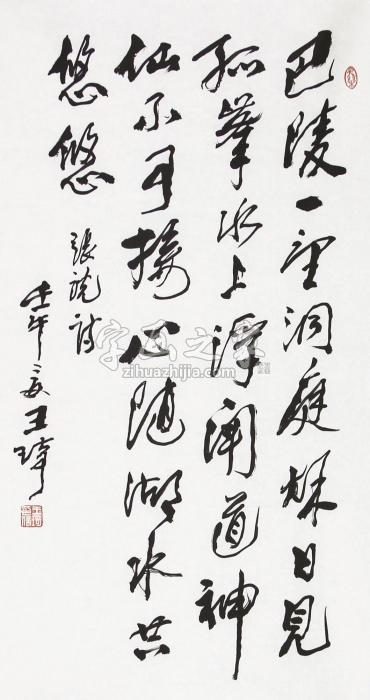 巴陵一望洞庭秋日見
孤峯水上浮聞道神
仙不可接心随湖水共
悠悠
張說詩
壬午 王
字画之家
www.zihuazhijia.com